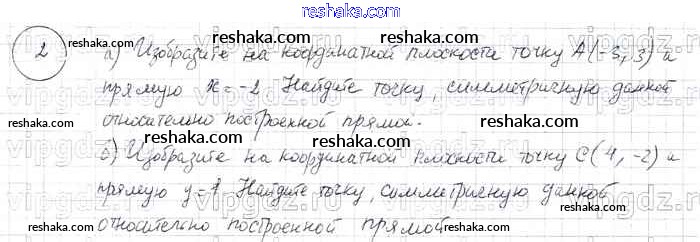 reshaka.com
2
reshaka.com reshaka.com
а) Изобразите на координатной плоскости точку А(-5, 3) и
прямую x = -2. Найдите точку, симметричную данной
reshaka.com
относительно построенной прямой.
reshaka.com reshaka.com
б) Изобразите на координатной плоскости точку С(4, -2) и
reshaka.com
прямую y = 1. Найдите точку, симметричную данной
reshaka.com reshaka.com
относительно построенной прямой
reshaka.com